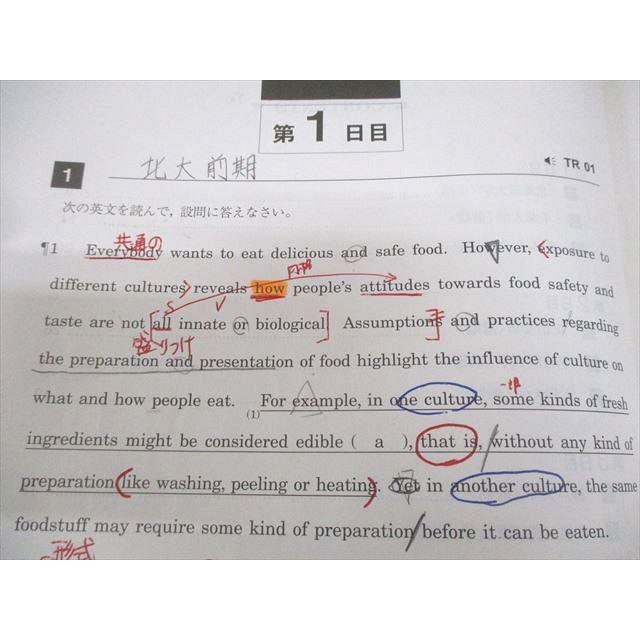 第1日目
1 北大前期 TR 01
次の英文を読んで，設問に答えなさい。
共通の
¶1 Everybody wants to eat delicious and safe food. However, exposure to
different cultures reveals how people's attitudes towards food safety and
S V
taste are not all innate or biological. Assumptions and practices regarding
盛りつけ
the preparation and presentation of food highlight the influence of culture on
what and how people eat. For example, in one culture, some kinds of fresh
(1)
ingredients might be considered edible ( a ), that is, without any kind of
preparation (like washing, peeling or heating). Yet in another culture, the same
foodstuff may require some kind of preparation before it can be eaten.
形式